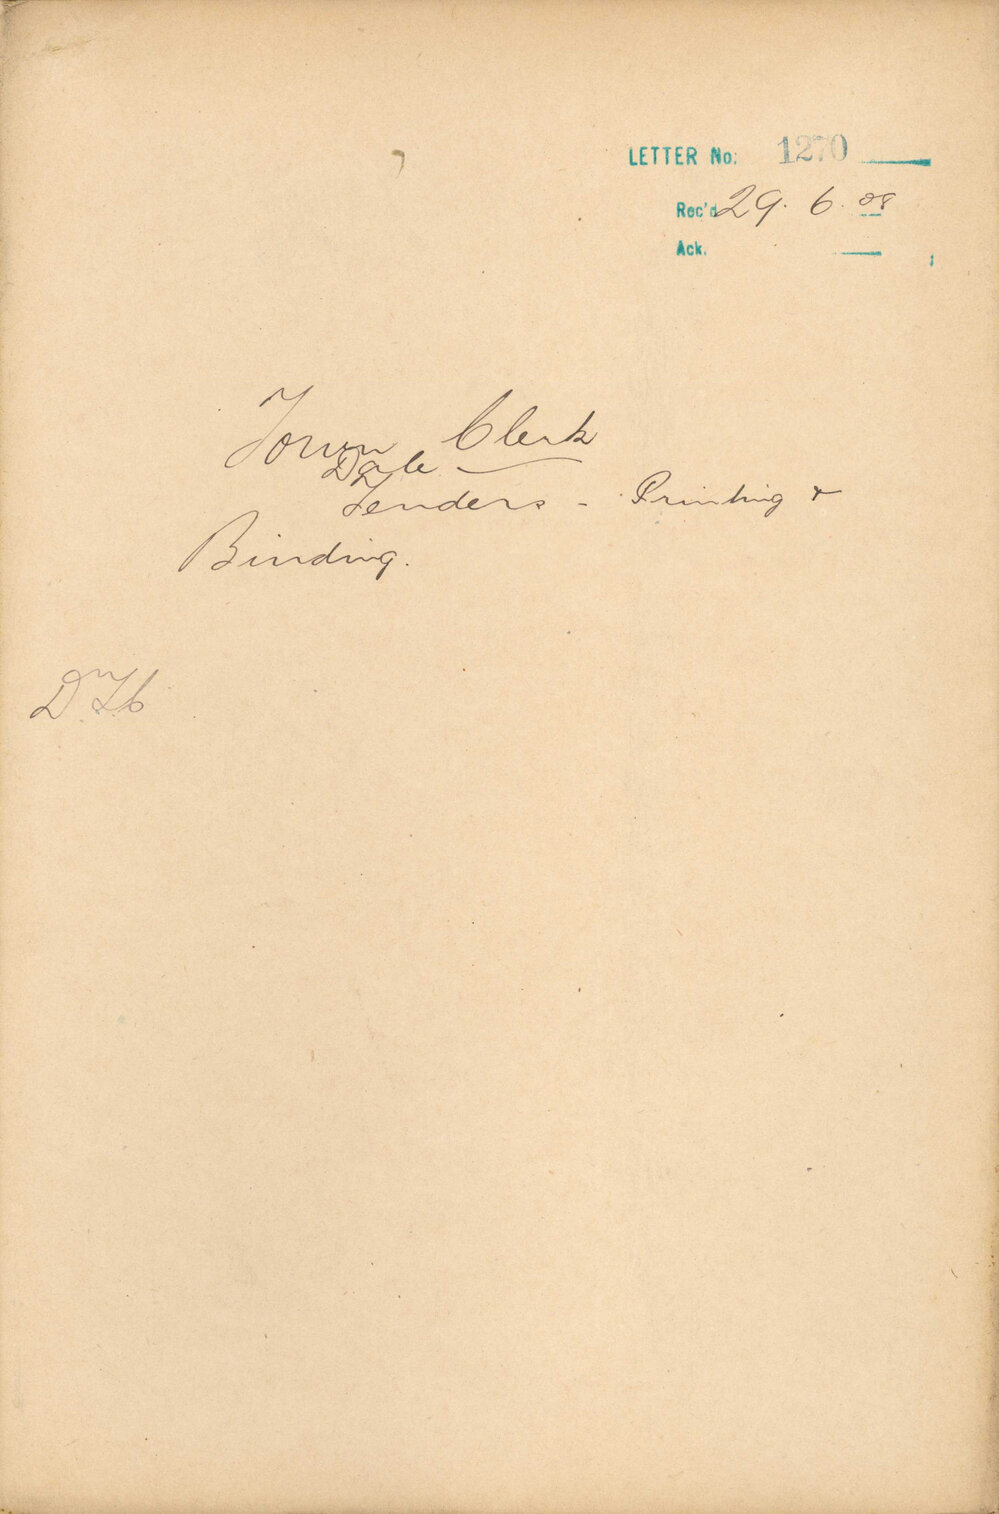 LETTER No: 1270
Rec'd 29. 6. 08
Ack.
Town Clerk
Dale
Tenders - Printing &
Binding.